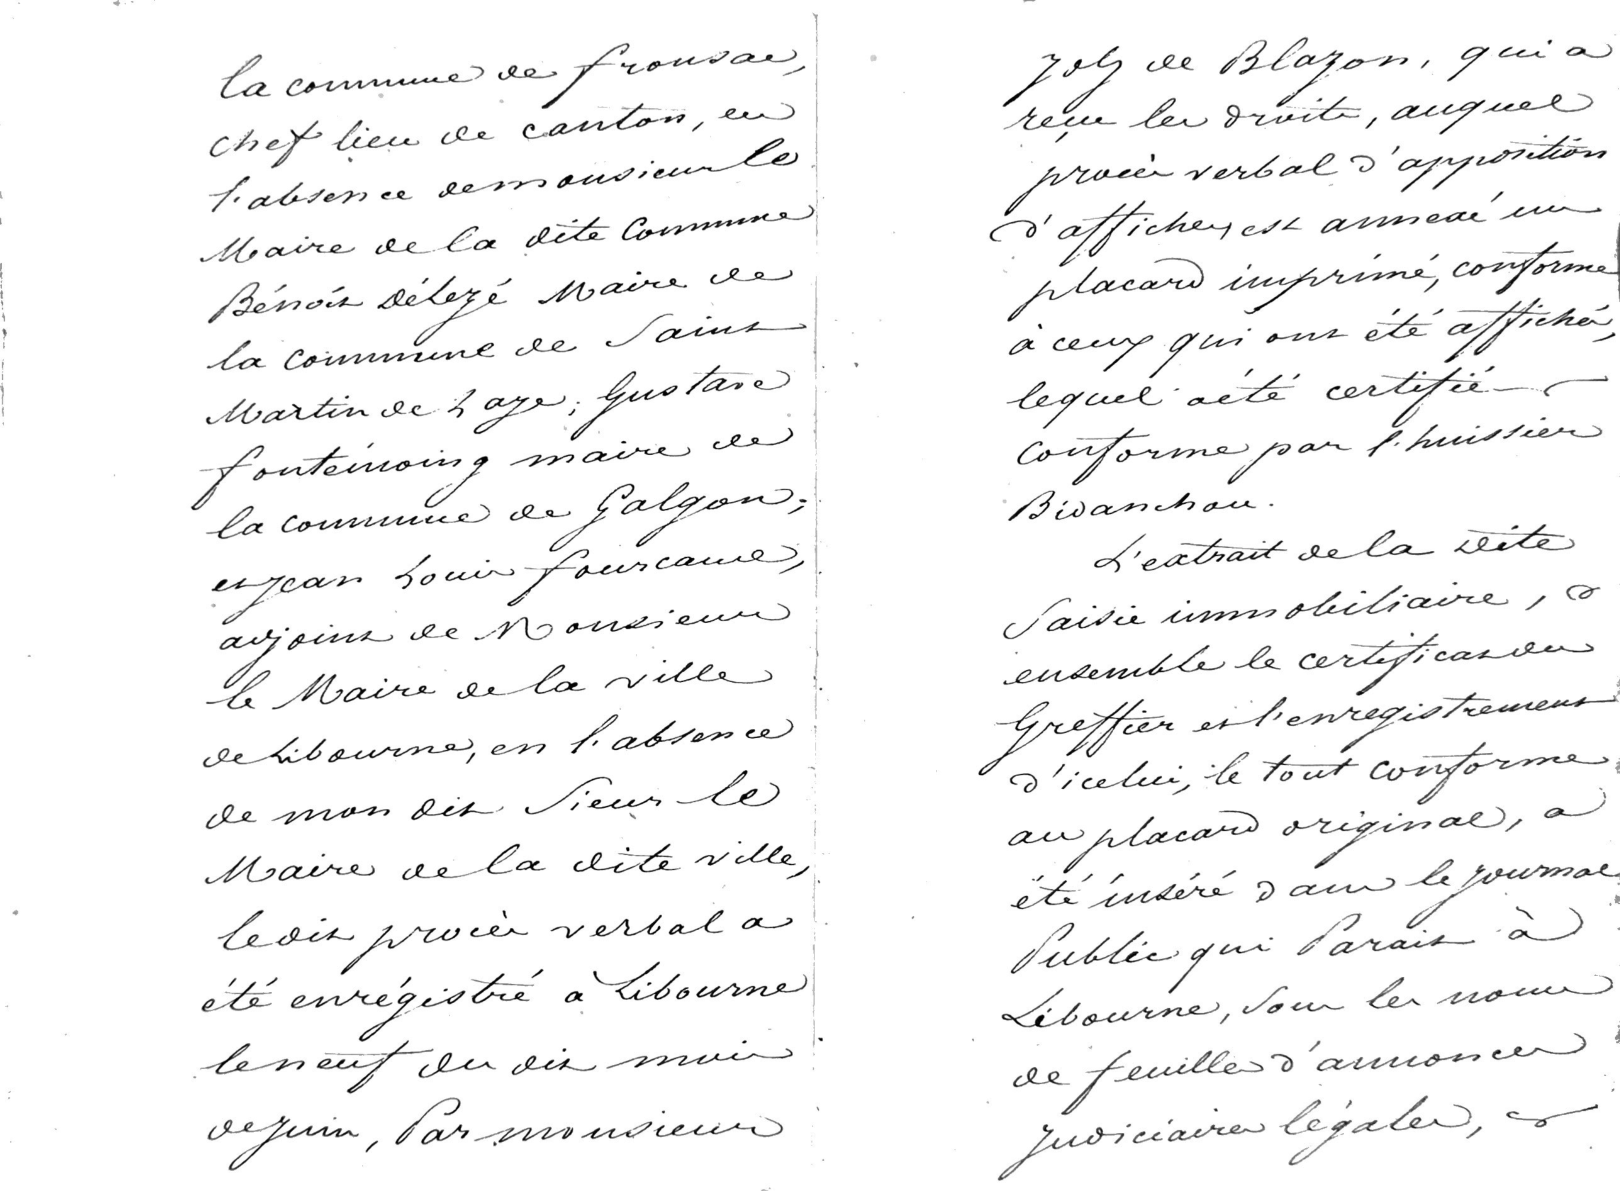 la commune de fronsac,
chef lieu de canton, en
l'absence de monsieur le
Maire de la dite Commune
Bénoît Délezé Maire de
la commune de Saint
Martin de Laye; Gustave
fontémoing maire de
la commune de Galgon;
et jean Louis fourcaud,
adjoint de Monsieur
le Maire de la ville
de Libourne, en l'absence
de mon dit Sieur le
Maire de la dite ville,
ledit procès verbal a
été enrégistré à Libourne
le neuf du dit mois
de juin, Par monsieur
Joly de Blazon, qui a
reçu les droits, auquel
procès verbal d'apposition
d'affiches est annexé un
placard imprimé, conforme
à ceux qui ont été affichés,
lequel a été certifié
conforme par l'huissier
Bidanchon.
L'extrait de la dite
Saisie immobiliaire,
ensemble le certificat du
Greffier et l'enregistrement
d'icelui, le tout conforme
au placard original, a
été inséré dans le journal
Public qui Parait à
Libourne, sous les noms
de feuilles d'annonces
judiciaires légales,